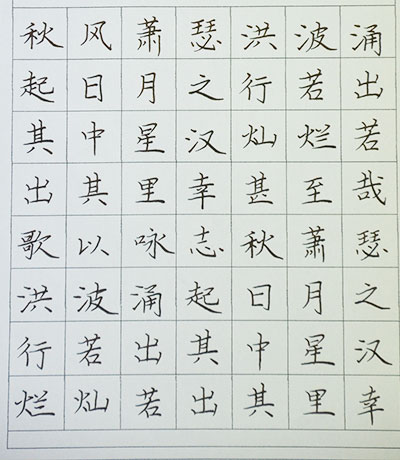 秋风萧瑟洪波涌
起日月之行若出
其中星汉灿烂若
出其里幸甚至哉
歌以咏志秋萧瑟
洪波涌起日月之
行若出其中星汉
烂灿若出其里幸